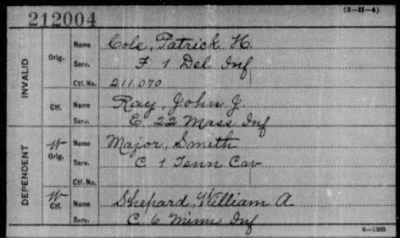 212004
(3-H-4)
INVALID
Orig.
Name Cole, Patrick H.
Serv. F 1 Del Inf
Ctf. No. 211,070
Ctf.
Name Ray, John J.
Serv. E 22 Mass Inf
DEPENDENT
W Orig.
Name Major, Smith
Serv. C 1 Tenn Cav
Ctf. No.
W Ctf.
Name Shepard, William A
Serv. C 6 Minn Inf